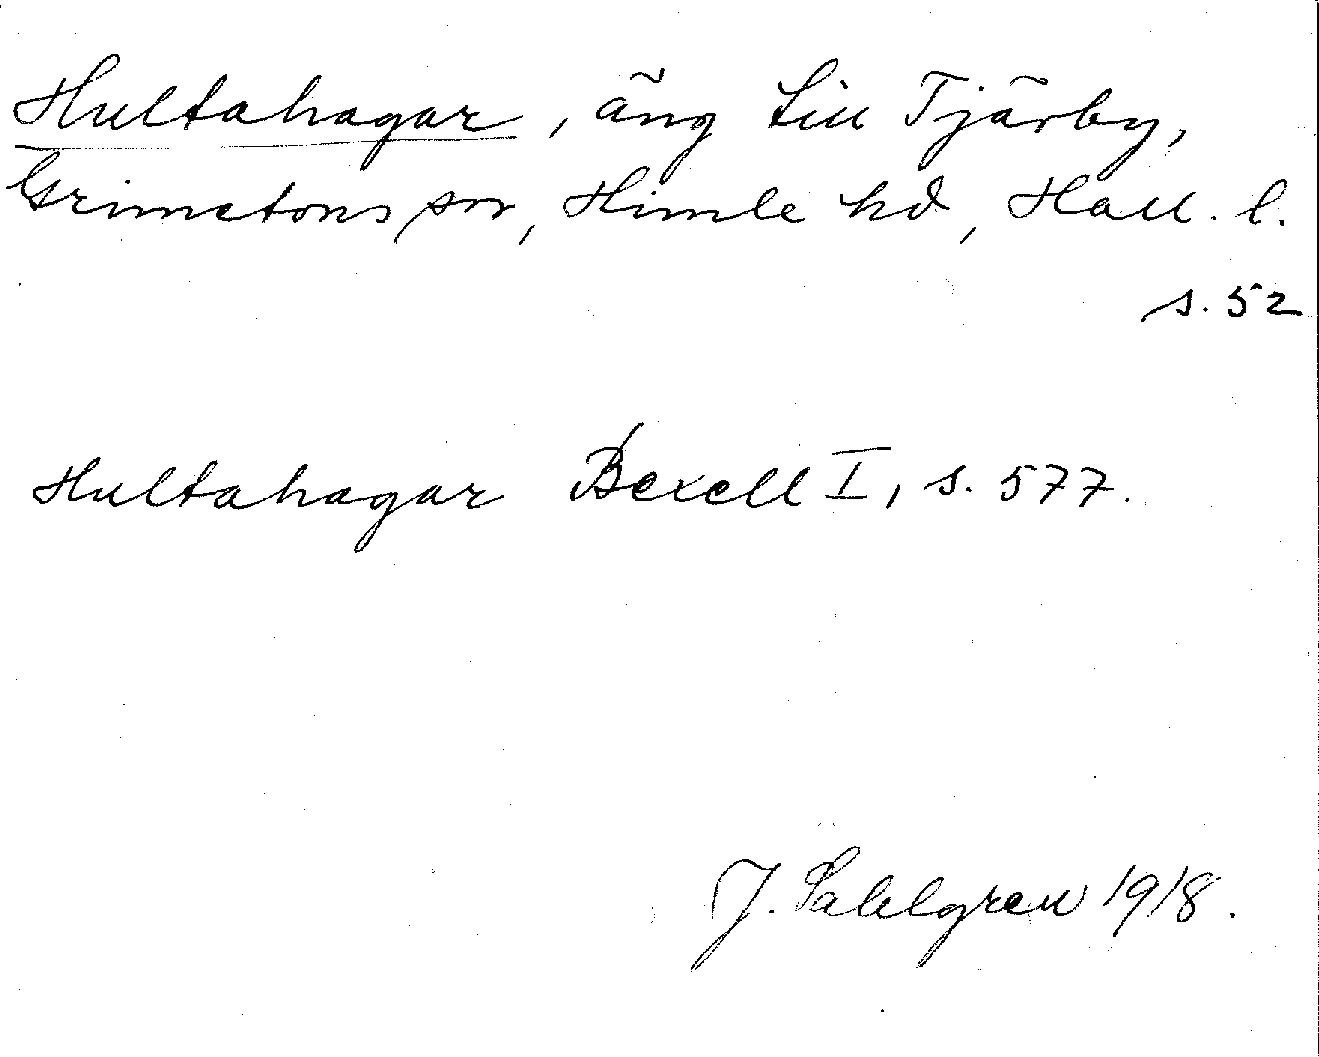 Hultahagar, äng till Tjärby,
Grimetons sn, Himle hd, Hall. l.
s. 52
Hultahagar Bexell I, s. 577.
J. Sahlgren 1918.